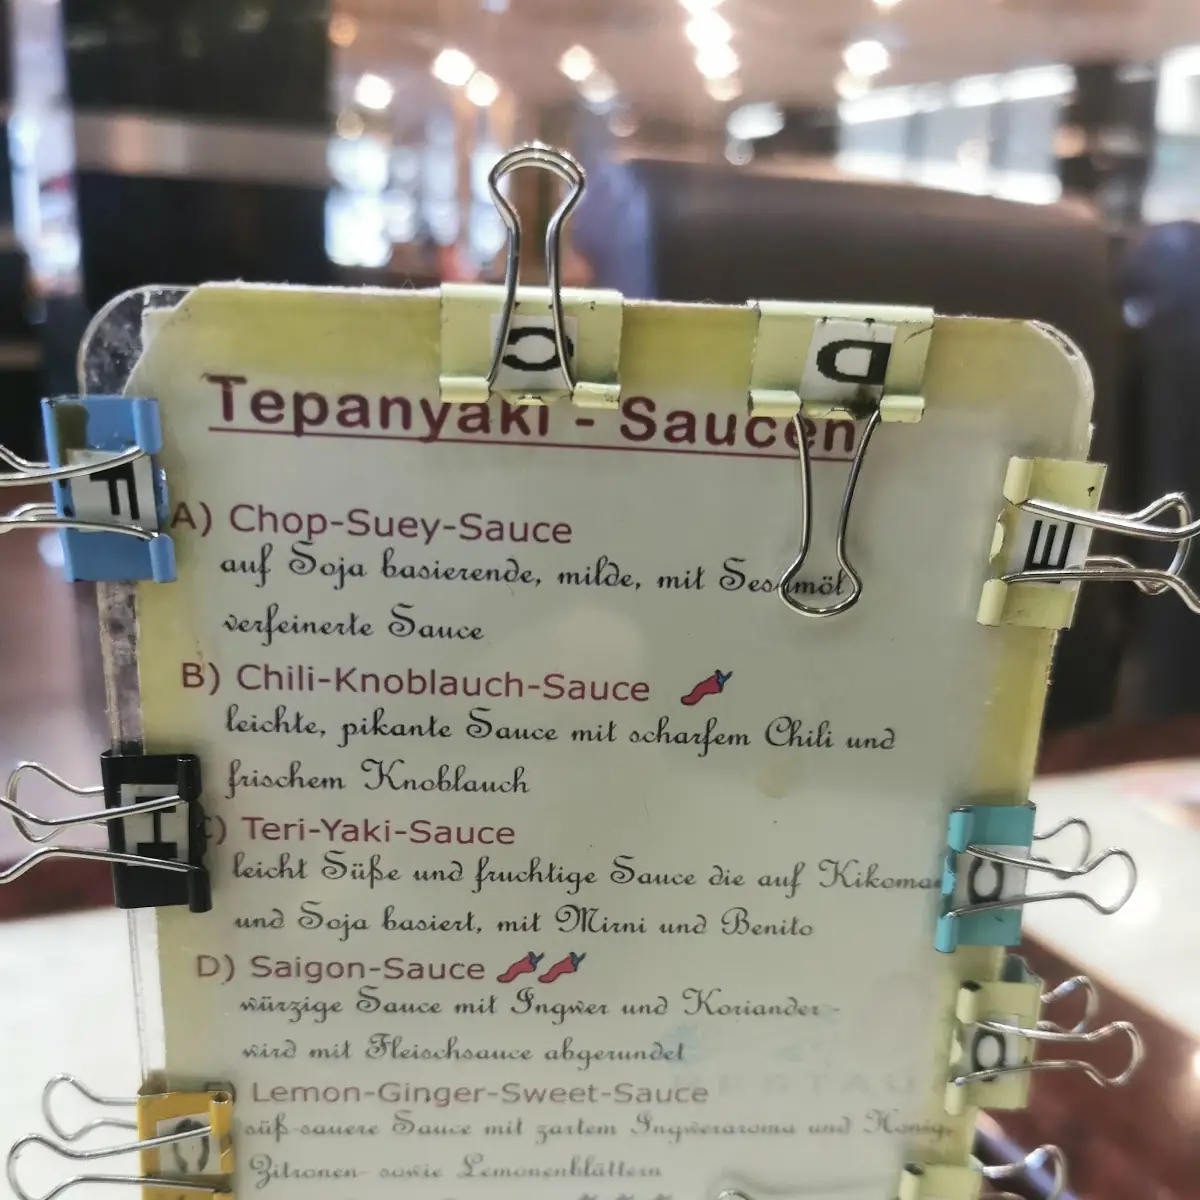 C
D
Tepanyaki - Saucen
F
E
A) Chop-Suey-Sauce
auf Soja basierende, milde, mit Sesamöl
verfeinerte Sauce
B) Chili-Knoblauch-Sauce
leichte, pikante Sauce mit scharfem Chili und
frischem Knoblauch
H
C) Teri-Yaki-Sauce
leicht Süße und fruchtige Sauce die auf Kikoma
und Soja basiert, mit Mirni und Benito
D) Saigon-Sauce
würzige Sauce mit Ingwer und Koriander -
wird mit Fleischsauce abgerundet
E) Lemon-Ginger-Sweet-Sauce
süß-sauere Sauce mit zartem Ingweraroma und Honig,
Zitronen- sowie Lemonenblättern